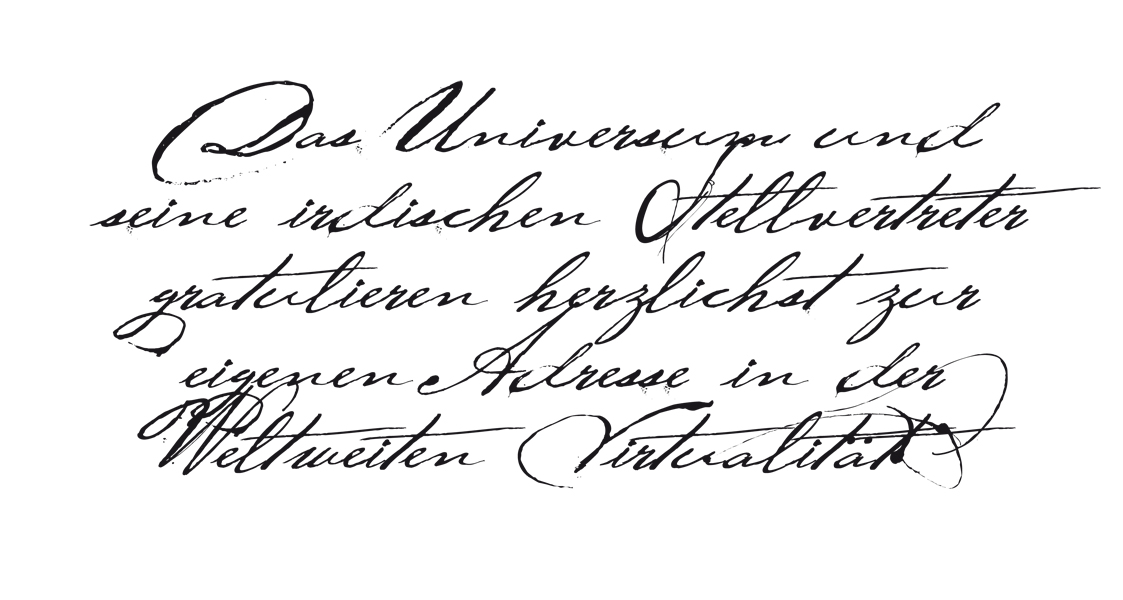 Das Universum und
seine irdischen Stellvertreter
gratulieren herzlichst zur
eigenen Adresse in der
Weltweiten Virtualität